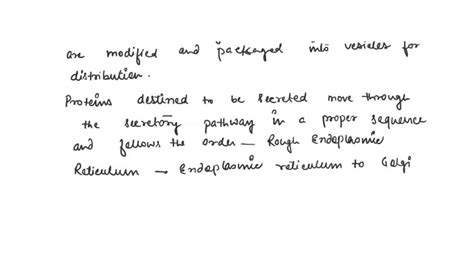 are modified and packaged into vesicles for
distribution.
Proteins destined to be secreted move through
the secretory pathway in a proper sequence
and follows the order — Rough Endoplasmic
Reticulum → Endoplasmic reticulum to Golgi